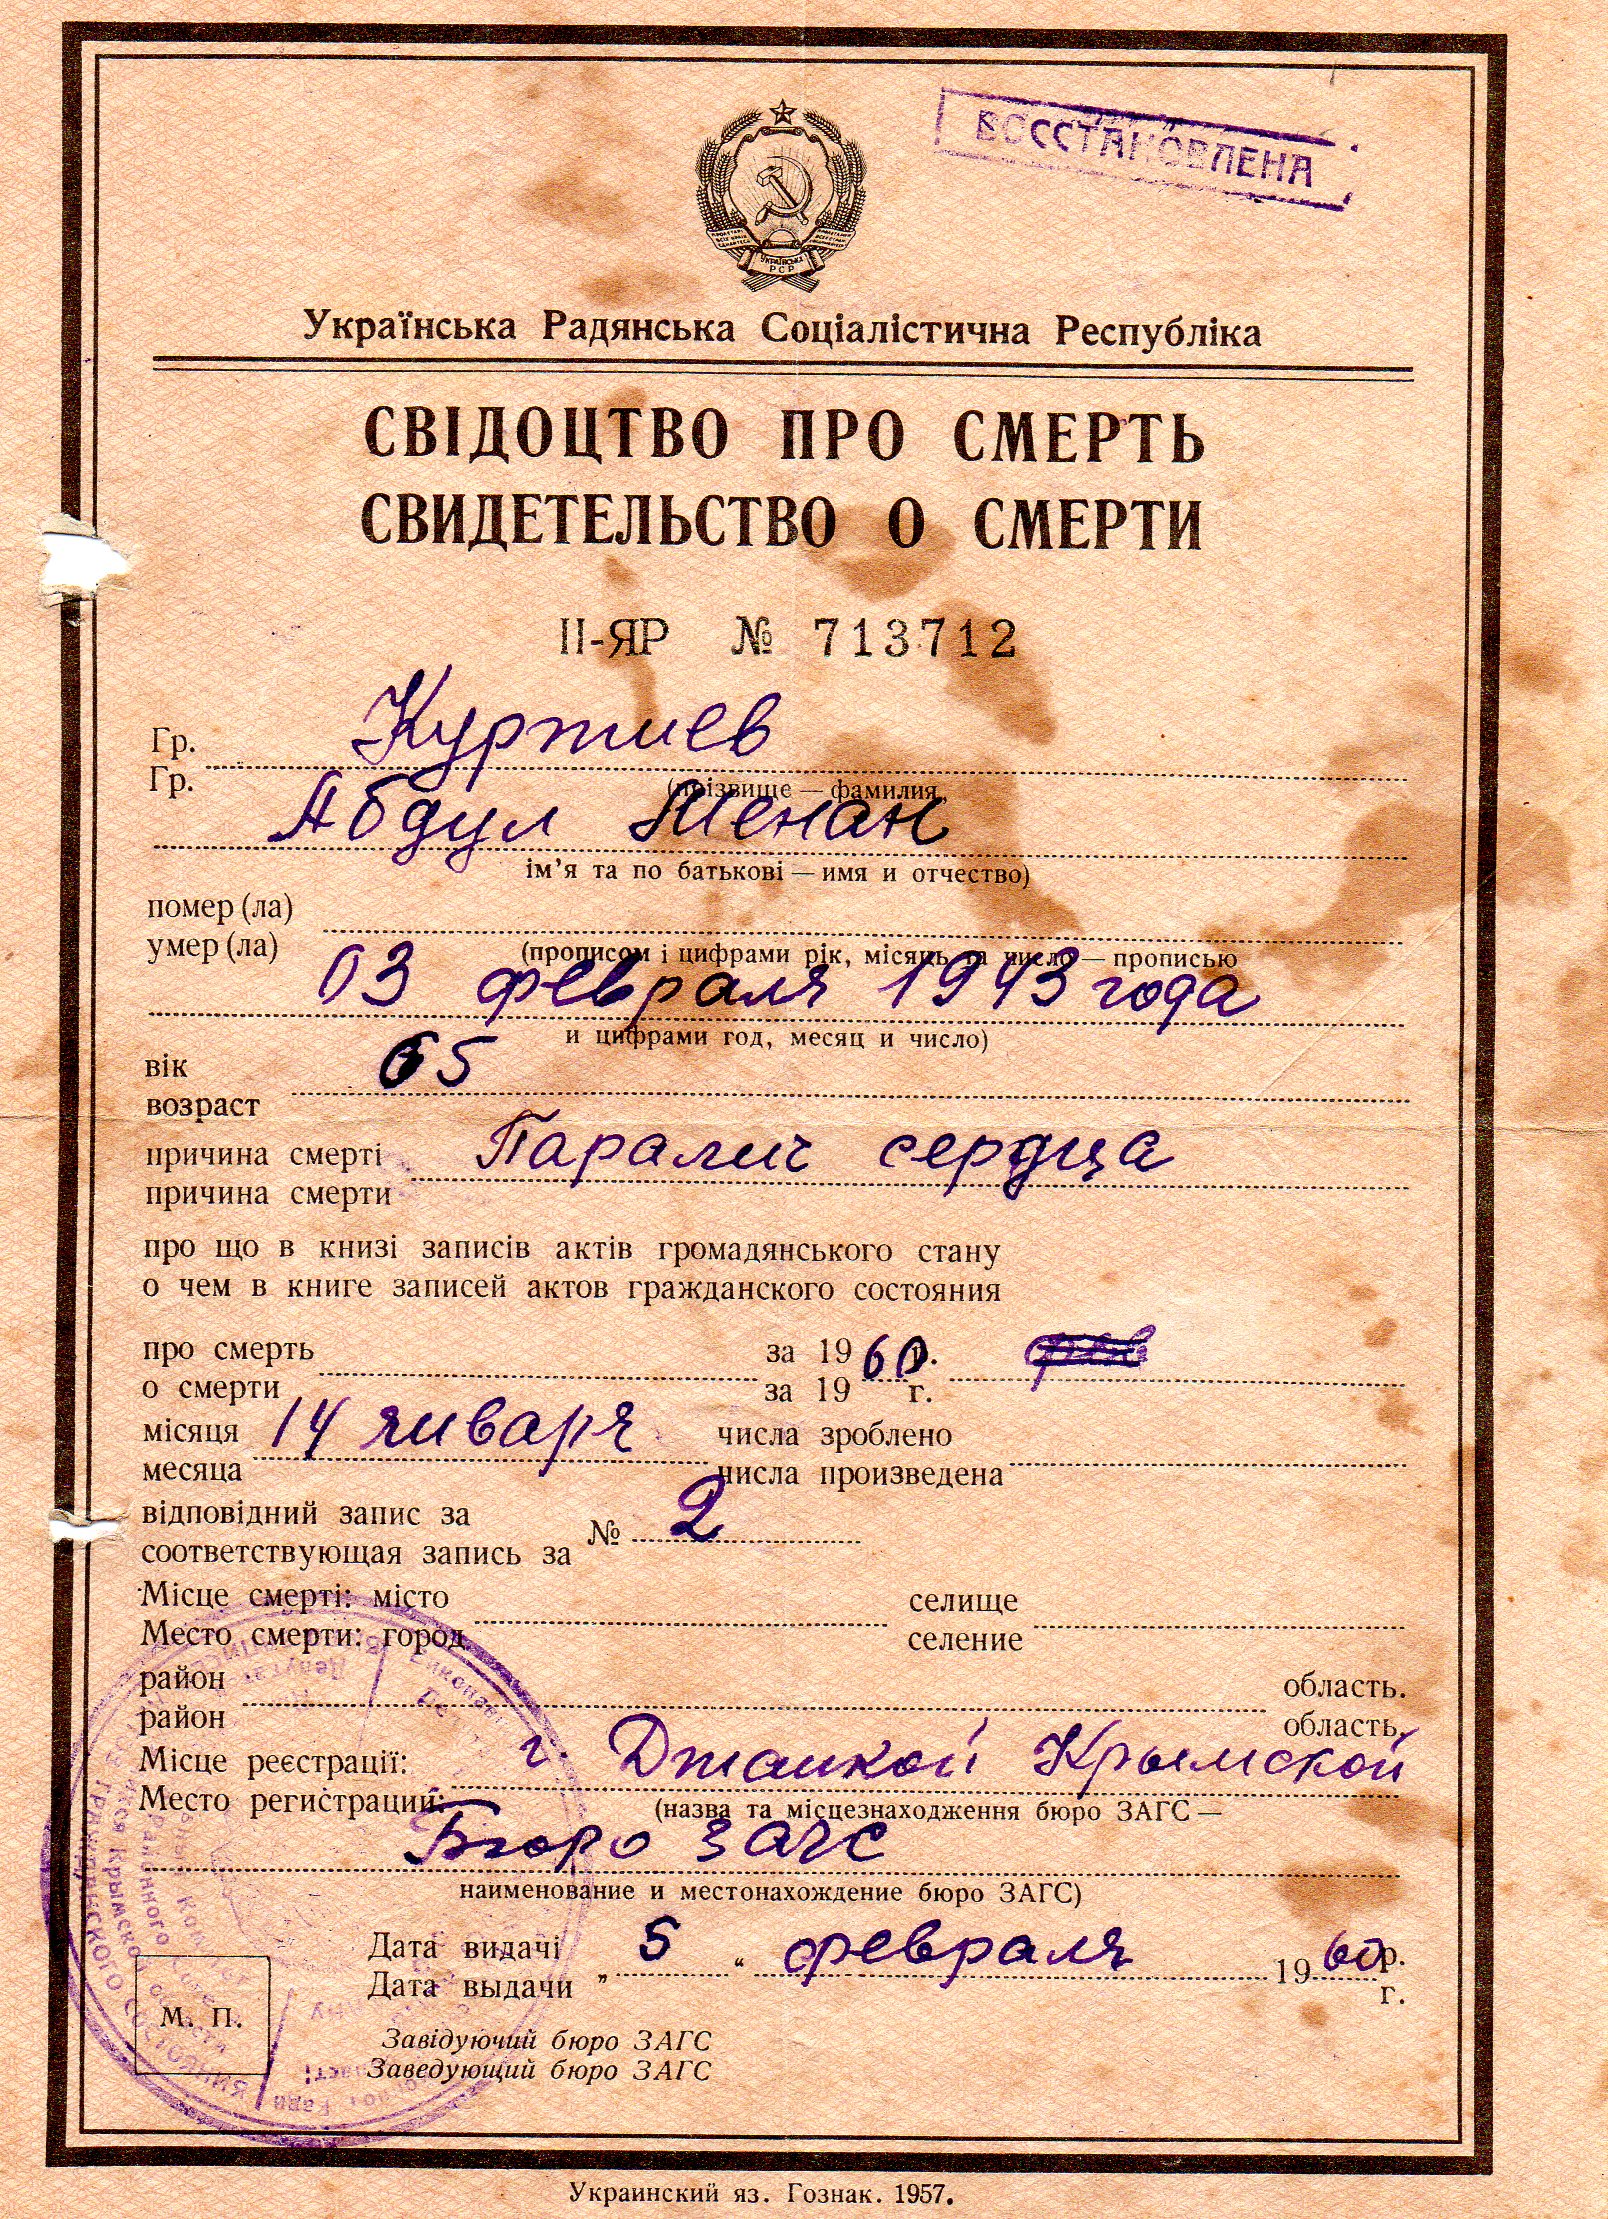 ВОССТАНОВЛЕНА
УКРАЇНСЬКА
РСР
Українська Радянська Соціалістична Республіка
СВІДОЦТВО ПРО СМЕРТЬ
СВИДЕТЕЛЬСТВО О СМЕРТИ
II-ЯР № 713712
Гр. Куртиев
Гр.
(прізвище — фамилия,
Абдул Менан
ім'я та по батькові — имя и отчество)
помер (ла)
умер (ла)
(прописом і цифрами рік, місяць та число — прописью
03 февраля 1943 года
и цифрами год, месяц и число)
вік 65
возраст
причина смерті Паралич сердца
причина смерти
про що в книзі записів актів громадянського стану
о чем в книге записей актов гражданского состояния
про смерть за 1960 р.
о смерти за 19 г.
місяця 14 января числа зроблено
месяца числа произведена
відповідний запис за № 2
соответствующая запись за
Місце смерті: місто селище
Место смерти: город селение
район область.
район область.
Місце реєстрації: г. Джанкой Крымской
Место регистрации:
(назва та місцезнаходження бюро ЗАГС —
Бюро загс
наименование и местонахождение бюро ЗАГС)
Дата видачі „ 5 “ февраля 1960 р.
Дата выдачи г.
М. П.
Завідуючий бюро ЗАГС
Заведующий бюро ЗАГС
Украинский яз. Гознак. 1957.